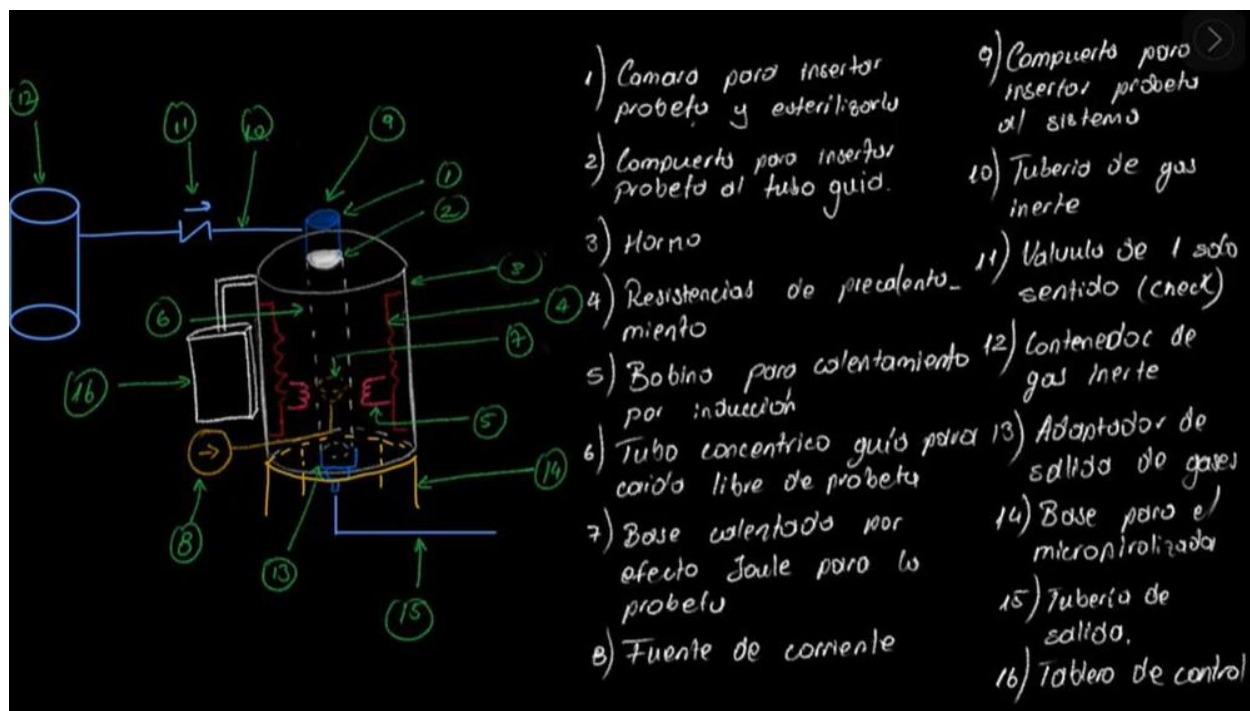 12
11
10
9
1
2
3
4
6
7
16
5
14
8
13
15
1) Camara para insertar
probeta y esterilizarla
2) Compuerta para insertar
probeta al tubo guia.
3) Horno
4) Resistencias de precalenta-
miento
5) Bobina para calentamiento
por inducción
6) Tubo concentrico guía para
caida libre de probeta
7) Base calentada por
efecto Joule para la
probeta
8) Fuente de corriente
9) Compuerta para
insertar probeta
al sistema
10) Tuberia de gas
inerte
11) Valvula de 1 solo
sentido (check)
12) Contenedor de
gas inerte
13) Adaptador de
salida de gases
14) Base para el
micropirolizador
15) Tubería de
salida.
16) Tablero de control